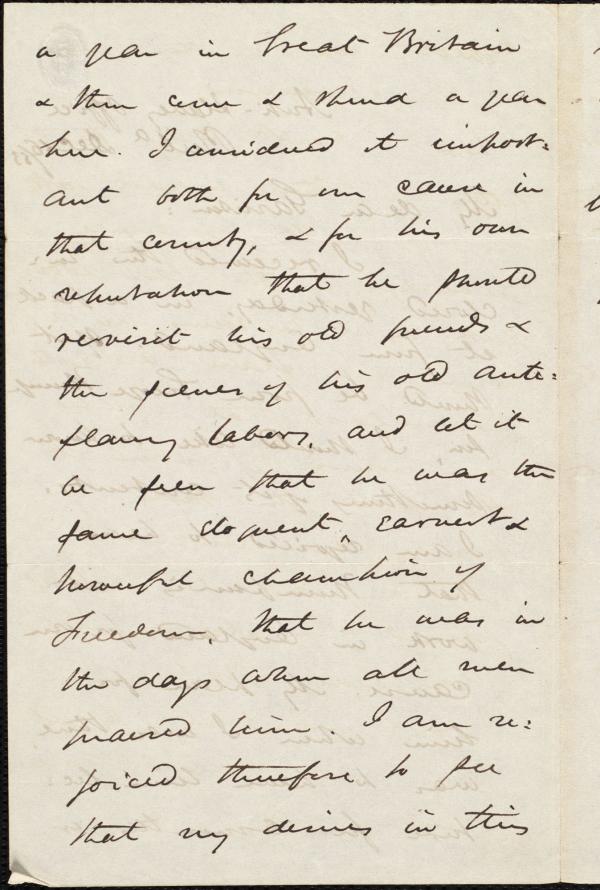 a year in Great Britain
& then come & spend a year
here. I considered it import=
ant both for our cause in
that country, & for his own
reputation that he should
revisit his old friends &
the scenes of his old anti=
slavery labors, and let it
be seen that he was the
same eloquent, earnest &
powerful champion of
Freedom, that he was in
the days when all men
praised him. I am re=
joiced therefore to see
that my desires in this